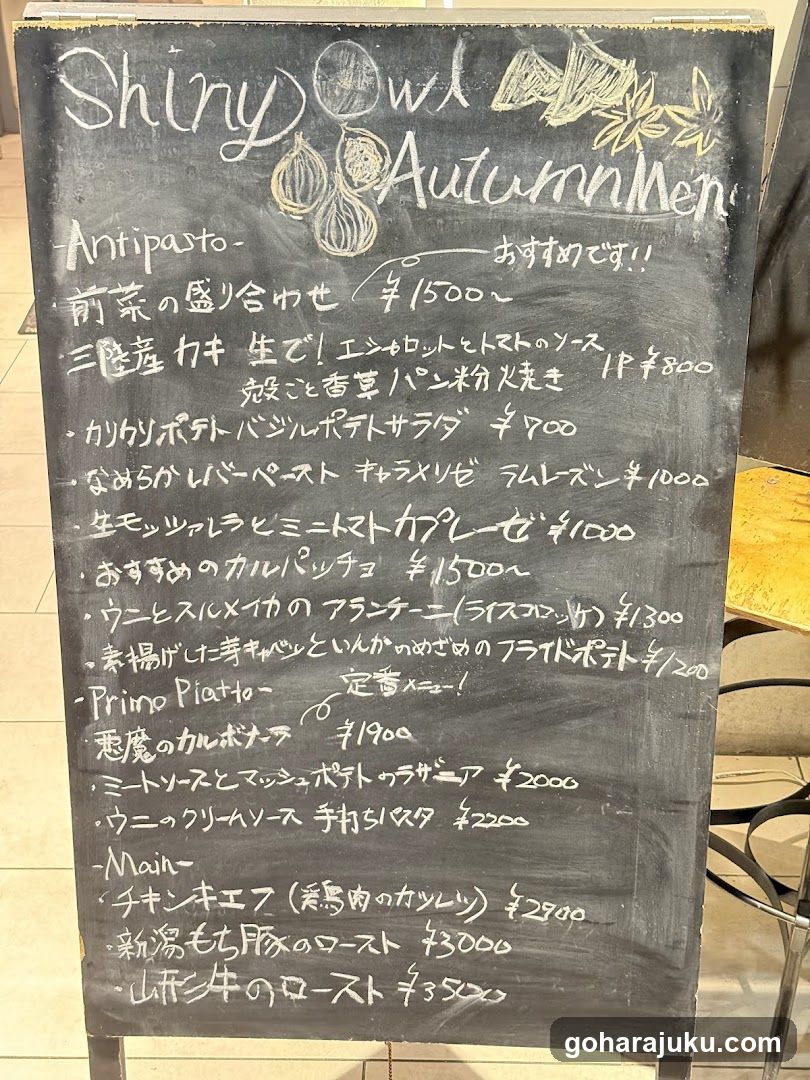 Shiny Owl
Autumn Men
-Antipasto-
おすすめです!!
・前菜の盛り合わせ ¥1500〜
・三陸産 カキ 生で! エシャロットとトマトのソース
殻ごと香草パン粉焼き 1P ¥800
・カリカリポテト バジルポテトサラダ ¥700
・なめらかレバーペースト キャラメリゼ ラムレーズン ¥1000
・生モッツァレラとミニトマト カプレーゼ ¥1000
・おすすめのカルパッチョ ¥1500〜
・ウニとスルメイカの アランチーニ(ライスコロッケ) ¥1300
・素揚げした芽キャベツといんかのめざめのフライドポテト ¥1200
-Primo Piatto-
定番メニュー!
・悪魔のカルボナーラ ¥1900
・ミートソースとマッシュポテトのラザニア ¥2000
・ウニのクリームソース 手打ちパスタ ¥2200
-Main-
・チキンキエフ (鶏肉のカツレツ) ¥2900
・新潟もち豚のロースト ¥3000
・山形牛のロースト ¥3500
goharajuku.com